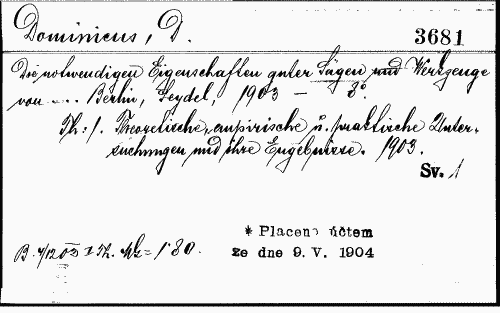 Dominicus, D.
3681
Die notwendigen Eigenschaften guter Sägen und Werkzeuge
von .... Berlin, Seydel, 1903 – 8°
Th: 1. Theoretische, empirische u. praktische Unter-
suchungen und ihre Ergebnisse. 1903.
Sv. 1
* Placeno účtem
ze dne 9. V. 1904
B. 4/12 03 I Th. Mk = 1·80.